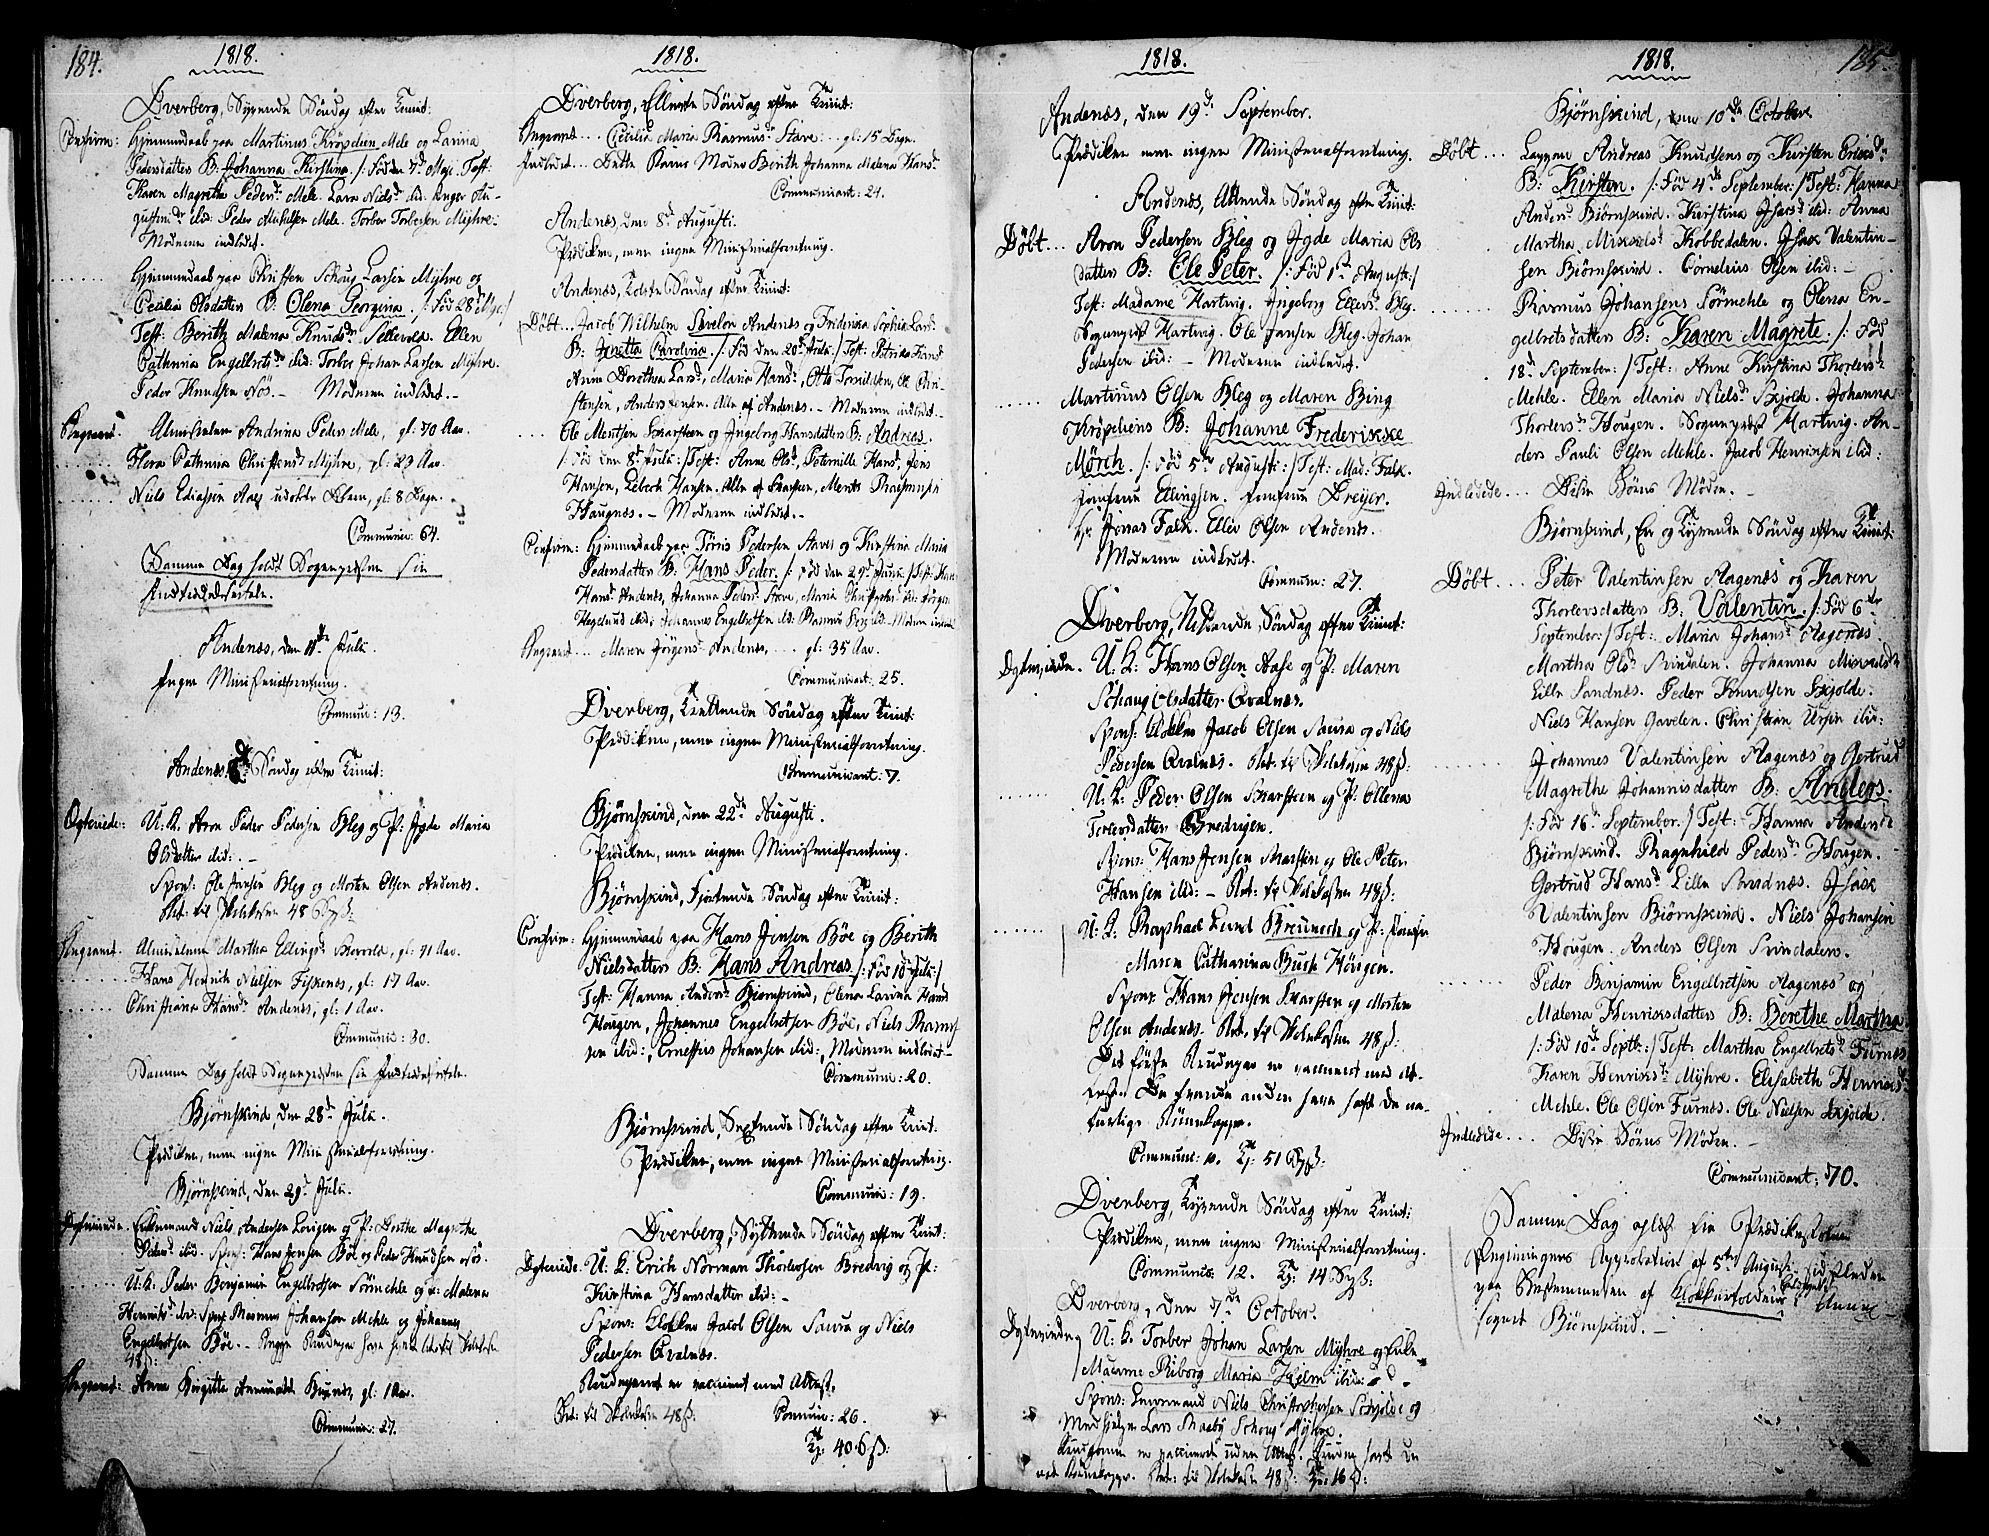 184.
1818.
Dverberg, Syvende Søndag efter Trinit:
Confirm: Hjemmedaab paa Martinus Kröpelien Mele og Lavina
Pedersdatters B: Johanna Kirstina. /: Født 7d Maji. Test:
Karen Magrethe Pedersd. Mele. Lava Nielsd. ibid: Inger Au-
gustinid. ibid: Peder Michelsen Mele. Torber Torbersen Myhre.
Moderen indledt.
Hjemmedaab paa Christen Schoug Larsen Myhre og
Cecilia Olsdatters B: Olena Georgina. /: Fød 28d Maji:/
Test: Berith Malena Knudsd. Ellen
Cathrina Engelbretsd. ibid: Torber Johan Larsen Myhre.
Peder Knudsen Nös. – Moderen indledt. –
Begravet. Almislem Andrina Pedersd Mele, gl: 70 Aar.
Flora Cathrina Christensd. Myhre, gl: 23 Aar.
Niels Ediasen Aase udøbt Barn, gl: 8 Dage.
Communic: 64.
Samme Dag holdt Sognepræsten sin
Andenæs, den 11te Juli.
Ingen Ministerialforretning.
Communic: 13.
Andenæs. 8de Søndag efter Trinit:
Copulerede: U: K. Aron Peder Pedersen Bleg og P: Jgde Maria
Olsdatter ibid: –
Spons: Ole Jansen Bleg og Morten Olsen Andenæs.
Bet: til Skolekassen 48 ß:
Begravet. Almislem Martha Ellingsd. gl: 71 Aar.
Hans Henrich Nielsen Fiskenæs, gl: 17 Aar.
Christiana Hansd. Andenæs, gl: 1 Aar.
Communic: 30.
Samme Dag holdt Sognepræsten sin
Bjørnskind, den 28d Juli.
Prædiken, men ingen Ministerialforretning.
Bjørnskind, den 29d Juli.
Enkemand Niels Andersen og P: Dorthe Magrethe
Pedersd. ibid. Spons: Hans Jensen Böe og Peder Knudsen Nös.
U: K. Peder Benjamin Engelbretsen Sörmehle og P: Malena
Henriksd. ibid: Spons: Rasmus Johansen Mehle og Johannes
Engelbretsen Böe. –
48 ß:
Begravet: Anne Birgitta gl: 1 Aar.
Communic: 27.
1818.
Dverberg, Ellevte Søndag efter Trinit:
Begravet ... Cecilia Maria Rasmusd. Stave: gl: 15 Dage.
Indledet ... Dette Barns Moder Berith Johanna Malena Hansd.
Communicant: 24.
Andenæs, den 8d Augusti.
Prædiken, men ingen Ministerialforretning.
Andenæs, Tolvte Søndag efter Trinit:
Døbt ... Jacob Wilhelm Sevelon Andenæs og Friderica Sophia Larsd.
B: Jenetta Carolina. /: Fød den 20d Juli:/ Test: Petrika Hansd
Anne Dorothea Larsd, Maria Hansd, Otto Tornildsen, Ole Chri-
stensen, Anders Jensen. Alle af Andenæs. – Moderen indledt. –
Ole Mentsen Skarsteen og Ingeborg Hansdatters B: Andreas.
/: Fød den 8d Juli:/ Test: Anne Olsd, Peternille Hansd, Jens
Hansen, Lebech Hansen. Alle af Skarsteen, Ments Rasmusen
Haugnæs. – Moderen indledt. –
Confirm: Hjemmedaab paa Törris Pedersen Stave og Kirstina Maria
Pedersdatters B: Hans Peder. /: Fød den 29d Juni:/ Test:
Hansd. Andenæs, Johanna Pedersd. Stave, Maria ibid: Jörgen
Hegelund ibid: Johannes Engelbretsen ibid: Rasmus ibid. – Moderen indledt
Begravet ... Maren Jörgensd Andenæs, ... gl: 35 Aar.
Communicant: 25.
Dverberg, Trettende Søndag efter Trinit:
Prædiken, men ingen Ministerialforretning.
Communicant: 7.
Bjørnskind, den 22de Augusti.
Prædiken, men ingen Ministerialforretning.
Bjørnskind, Fjortende Søndag efter Trinit:
Confirm: Hjemmedaab paa Hans Jensen Böe og Berith
Nielsdatters B: Hans Andreas /: Fød 10d Juli:/
Test: Hanna Andersd. Bjørnskind, Olena Lavina Hansd
Hougen, Johannes Engelbretsen Böe, Niels Rasmus-
sen ibid:, Ernestus Johansen ibid:, Moderen indledt –
Communic: 20.
Bjørnskind, Sextende Søndag efter Trinit:
Prædiken, men ingen Ministerialforretning.
Communic: 19.
Dverberg, Syttende Søndag efter Trinit:
Copulerede. U: K: Erich Norman Thorlevsen Bredvig og P:
Kirstina Hansdatter ibid: –
Spons: Klokker Jacob Olsen Saura og Niels
Pedersen Qvalnæs.
Brudeparret er vaccineret med Attest.
Bet: til Skolekassen 48 ß: Commun: 26.
40. 6 ß:
1818.
Andenæs, den 19d September.
Prædiken men ingen Ministerialforretning.
Andenæs, Attende Søndag efter Trinit:
Døbt ... Aron Pedersen Bleg og Jgde Maria Ols
datters B: Ole Peter. /: Fød 1ste Augusti:/
Test: Madame Hartvig. Ingeborg Ellevsd. Bleg.
Sognepræst Hartvig. Ole Jansen Bleg. Johan
Pedersen ibid: – Moderen indledet.
Martinus Olsen Bleg og Maren Bing
Kröpeliens B: Johanne Frederikke
Mørch. /: Fød 5te Augusti:/ Test: Mad: Falk.
Jomfrue Ellingsen. Jomfrue Dreyer.
Hr Jonas Falk. Ellev Olsen Andenæs.
Moderen indledet.
Commun: 27.
Dverberg, Nittende Søndag efter Trinit:
Copulerede. U. K: Hans Olsen Aase og P: Maren
Schoug Olsdatter Qvalnæs.
Spons: Klokker Jacob Olsen Saura og Niels
Pedersen Qvalnæs. Bet. til Skolekassen 48 ß:
U: K: Peder Olsen Skarsteen og P: Ollena
Torlevsdatter Bredvigen.
Spons: Hans Jensen Skarsten og Ole Peter
Hansen ibid: – Bet: til Skolekassen 48 ß:
U: K: Raphael Lund Breuneck og P: Jomfrue
Maren Catharina Buck Höugen.
Spons: Hans Jensen Skarsten og Morten
Olsen Andenæs. Bet. til Skolekassen 48 ß:
Det første Brudepar er vaccineret med At-
test. De tvende andre have havt de na-
turlige Børnekopper.
Commun: 10. 51 ß:
Dverberg, Tyvende Søndag efter Trinit:
Prædiken, men ingen Ministerialforretning.
Communic: 12. 14 ß:
Dverberg, den 7de October.
Copulerede U: K: Torber Johan Larsen Myhre og Enke
Madame Riborg Maria Hielm ibid:
Spons: Lensmand Niels Christophersen Schjolde og
Medhjelper Lars Schoug Myhre.
Brudgommen er vaccineret uden Attest. Bruden havt de
Bet: til Skolekassen 48 ß: 16 ß:
1818.
185.
Bjørnskind, den 10de October
Døbt ... Lappen Andreas Knudsens og Kirsten Eriksd.
B: Kirsten. /: Fød 4de September:/ Test: Hanna
Andersd Bjørnskind. Kirstina Isacsd ibid: Anna
Martha Mikkelsd Kobbedalen. Isac Valentin-
sen Bjørnskind. Cornelius Olsen ibid: –
Rasmus Johansens Sörmehle og Olena En-
gelbretsdatters B: Karen Magrete. /: Fød
18d September:/ Test: Anne Kirstina Thorlevsd
Mehle. Ellen Maria Nielsd Skjolde. Johanna
Thorlevsd Hougen. Sognepræst Hartvig. An-
ders Pauli Olsen Mehle. Jacob Henriksen ibid:
Indledede ... Disse Børns Mødre. –
Bjørnskind, En og Tyvende Søndag efter Trinit:
Døbt ... Peter Valentinsen Aagenæs og Karen
Thorlevsdatters B: Valentin. /: Fød 6te
September:/ Test: Maria Johansd Aagenæs.
Martha Olsd Svindalen. Johanna Mikkelsd
Lille Sandnæs. Peder Knudsen Skjolde.
Niels Hansen Gavelen. Christian Ursin ibid:
Johannes Valentinsen Aagenæs og Gertrud
Magrethe Johannisdatter B: Anders.
/: Fød 16d September:/ Test: Hanna Andersd
Bjørnskind. Ragnhild Pedersd Hougen.
Gertrud Hansd Lille Sandnæs. Isac
Valentinsen Bjørnskind. Niels Johansen
Hougen. Anders Olsen Svindalen.
Peder Benjamin Engelbretsen Aagenæs og
Malena Henriksdatters B: Berethe Martha
/: Fød 10d Septb:/ Test: Martha Engelbretsd Furnæs
Karen Henriksd Myhre. Elisabeth Henriksd
Mehle. Ole Olsen Furnæs. Ole Nielsen Skjolde
Indledede ... Disse Børns Mødre. –
Communicant: 70.
Samme Dag oplæst fra Prædikestolen
Regjeringens Approbation af 5te Augusti
paa Bestemmelsen af Klokkertolden i Annex
sognet Bjørnskind. –